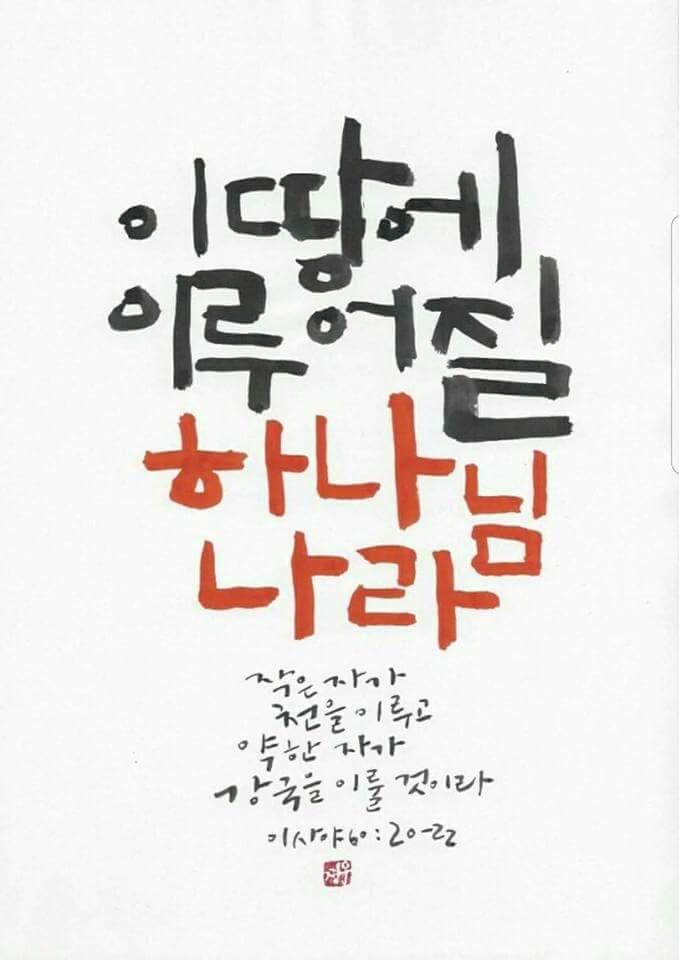 이 땅에
이루어질
하나님
나라
작은 자가
천을 이루고
약한 자가
강국을 이룰 것이라
이사야 60:20-22